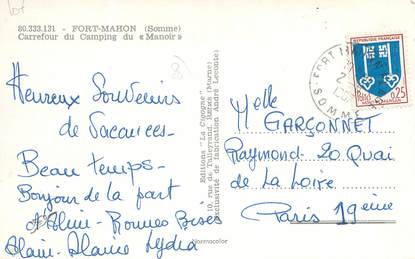 80.333.131 - FORT-MAHON (Somme)
Carrefour du Camping du « Manoir »
Heureux Souvenirs
de Vacances-
Beau temps-
Bonjour de la part
Bonnes Bises
Alain-
Lydia
Editions "La Cigogne"
10, rue de Talleyrand, Reims (Marne)
Exclusivité de fabrication André Leconte
REPUBLIQUE FRANÇAISE
0,25
FORT-M
SOMME
Melle
GARÇONNET
Raymond 20 Quai
de La Loire
Paris 19eme